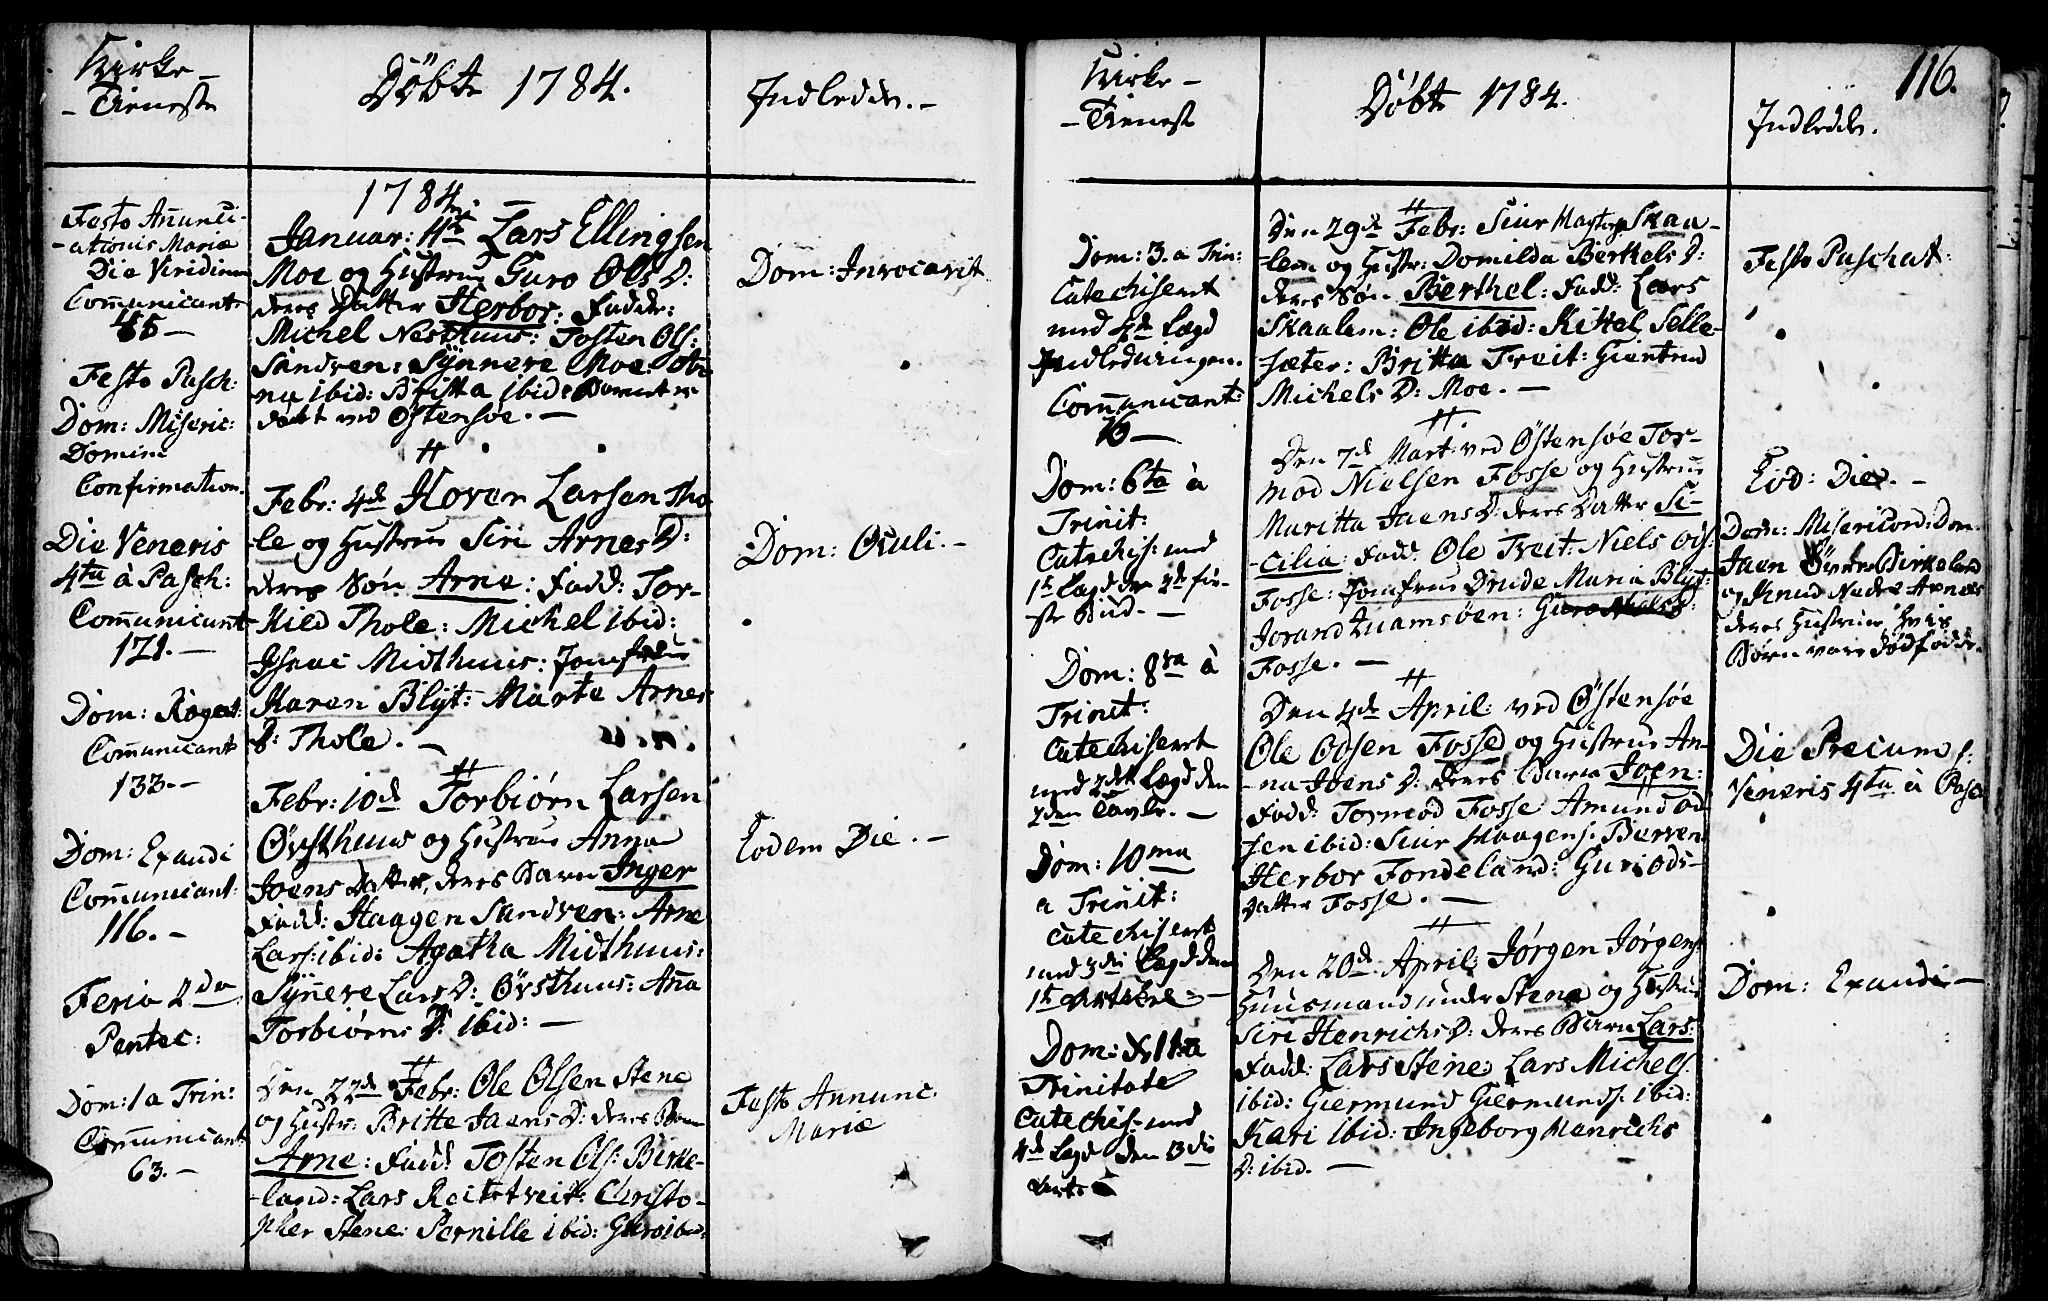 Kirke-
-Tieneste
Døbte 1784.
Indledde.-
Festo Añunci-
-ationis Mariæ
Die Viridium
Com̃unicant:
45-
Festo Pasch:
Dom: Miseric:
Domini
Confirmation.
Die Veneris
4ta à Pasch:
Com̃unicant
121.-
Dom: Rogat:
Com̃unicant
133.-
Dom: Exaudi
Com̃unicant:
116.-
Feria 2da
Pentec:
Dom: 1 a Trin:
Com̃unicant:
63.-
1784.
Januar: 4de Lars Ellingsen
Moe og Hustrue Guro Ols D:
deres Datter Herbor: Faddr:
Michel Nesthuus: Tosten Ols:
Sandven: Synneve Moe:
na ibid: Britta ibid: Barnet er
døbt ved Østensøe.-
#
Febr: 4de Hover Larsen Tho-
-le og Hustrue Siri Arnes D:
deres Søn Arne: Fadd: Tor-
-kild Thole: Michel ibid:
Isaac Midthuus: Jomfrue
Karen Blyt: Marta Arnes
D: Thole.-
#
Febr: 10de Torbiørn Larsen
Øvsthuus og Hustrue Anna
Joens Datter, deres Barn Inger
Fadd: Haagen Sandven: Arne
Lars: ibid: Agatha Midthuus:
Synneve Lars D: Øvsthuus: Aña
Torbiørns D: ibid:-
#
Den 22de Febr: Ole Olsen Stene
og Hustr: Britte Jaens D: deres Barn
Arne: Fadd: Tosten Ols: Birke-
-land: Lars Reitetveit: Christo-
pher Stene: Pernille ibid: Guro ibid:
Dom: Invocavit
Dom: Oculi.-
Eodem Die.-
Festo Annunc:
Mariæ
116.
Kirke-
-Tienest
Døbt 1784.
Indledde.
Dom: 3. a Trin:
Catechisert
med 4de Lægd
Indledningen.
Com̃unicant:
76-
Dom: 6ta à
Trinit:
Catechis: med
1te Lægd de 2de før-
ste Bud.-
Dom: 8va à
Trinit:
Catechisert
med 2det Lægd den
2den Tavle.-
Dom: 10ma
a Trinit:
Catechisert
med 3die Lægd den
1te Artikel.-
Dom: 11a
Trinitate
Catechis: med
4de Lægd den 3die
#
Den 29de Febr: Siur Skaa-
-lem og Hustr: Domilda Berthels D:
deres Søn Berthel: Fadd: Lars
Skaalem: Ole ibid: Kittel Selle-
sæter: Britta Treit: Giertrud
Michels D: Moe.-
#.
Den 7de Mart: ved Østensøe Tor-
mod Nielsen Fosse og Hustrue
Maritta Jaens D: deres Datter Si-
-cilia: Fadd: Ole Treit: Niels Ods:
Fosse: Jomfrue Drude Maria Blyt:
Jorand Quamsøen: Guro Niels D:
Fosse.-
#
Den 4de April: ved Østensøe
Ole Odsen Fosse og Hustrue An-
-na Joens D: deres Barn Joen:
Fadd: Tormod Fosse: Amund Od-
sen ibid: Siur Haagens: Berven
Herbor Fondeland: Guri Ods-
Datter Fosse.-
#
Den 20de April: Jørgen Jørgens:
Huusmand under Stene og Hustrue
Siri Henrichs D: deres Barn Lars:
Fadd: Lars Stene: Lars Michels:
ibid: Giermund Giermunds: ibid:
Kari ibid: Ingeborg Henrichs
D: ibid.-
Festo Paschat:
Eod: Die.-
Dom: Misericord: Dom:
Jaen Øvre Birkeland
og Knud Nedre Arnes
deres Hustruer, hvis
Børn vare dødfødde.
Die Precum s:
Veneris 4ta à Pasc
Dom: Exaudi-